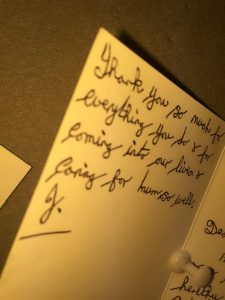 Thank you so much for
everything you do & for
coming into our lives &
caring for hum so well.
J.
Dea